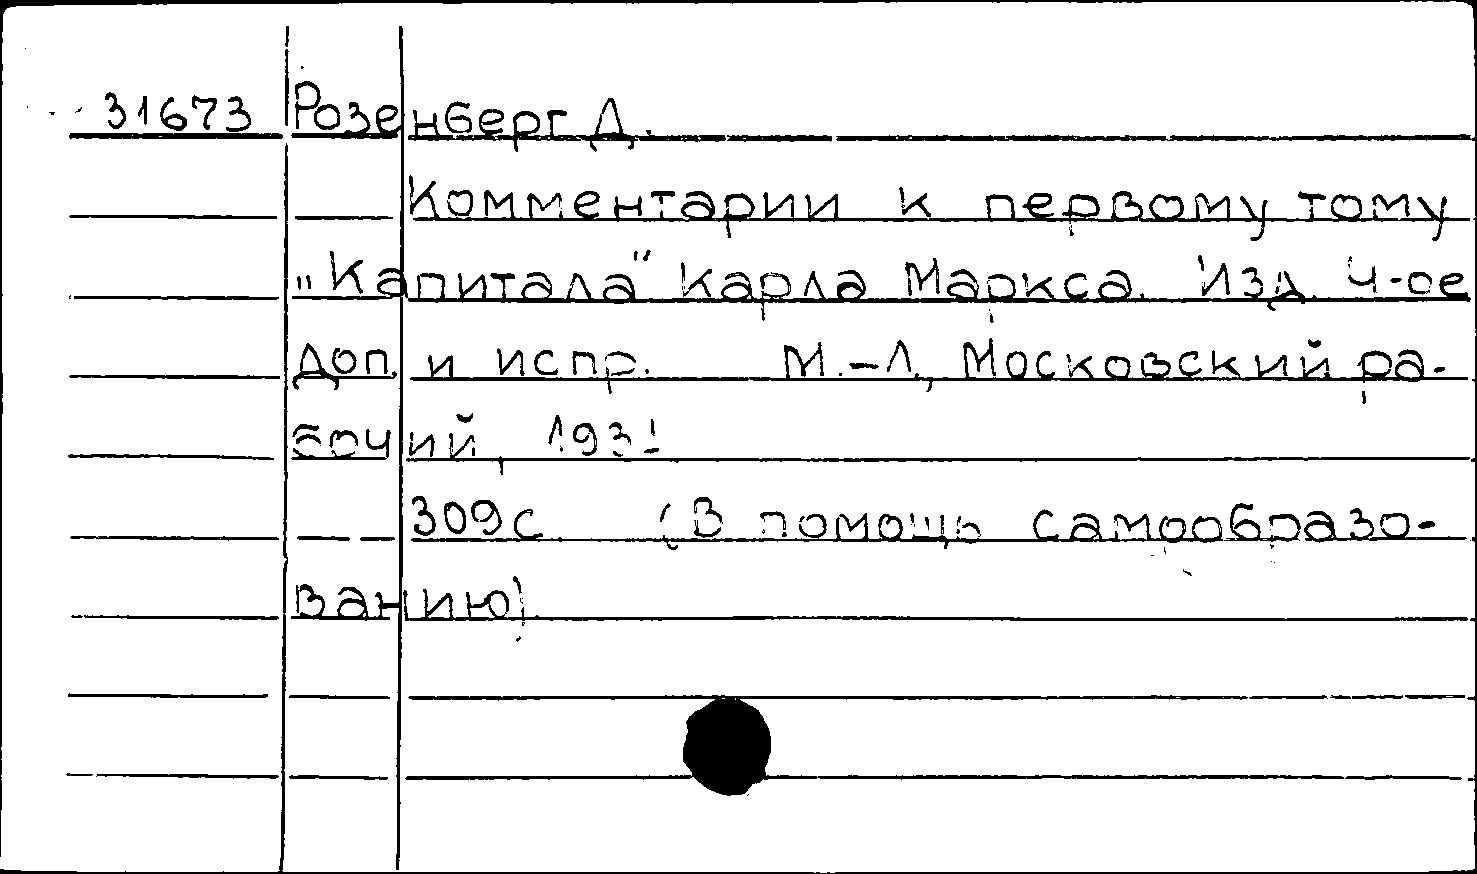 31673 Розенберг Д.
Комментарии к первому тому
„Капитала" Карла Маркса. Изд. 4-ое
доп. и испр. М.-Л., Московский ра-
бочий, 1931
309с. (В помощь самообразо-
ванию)